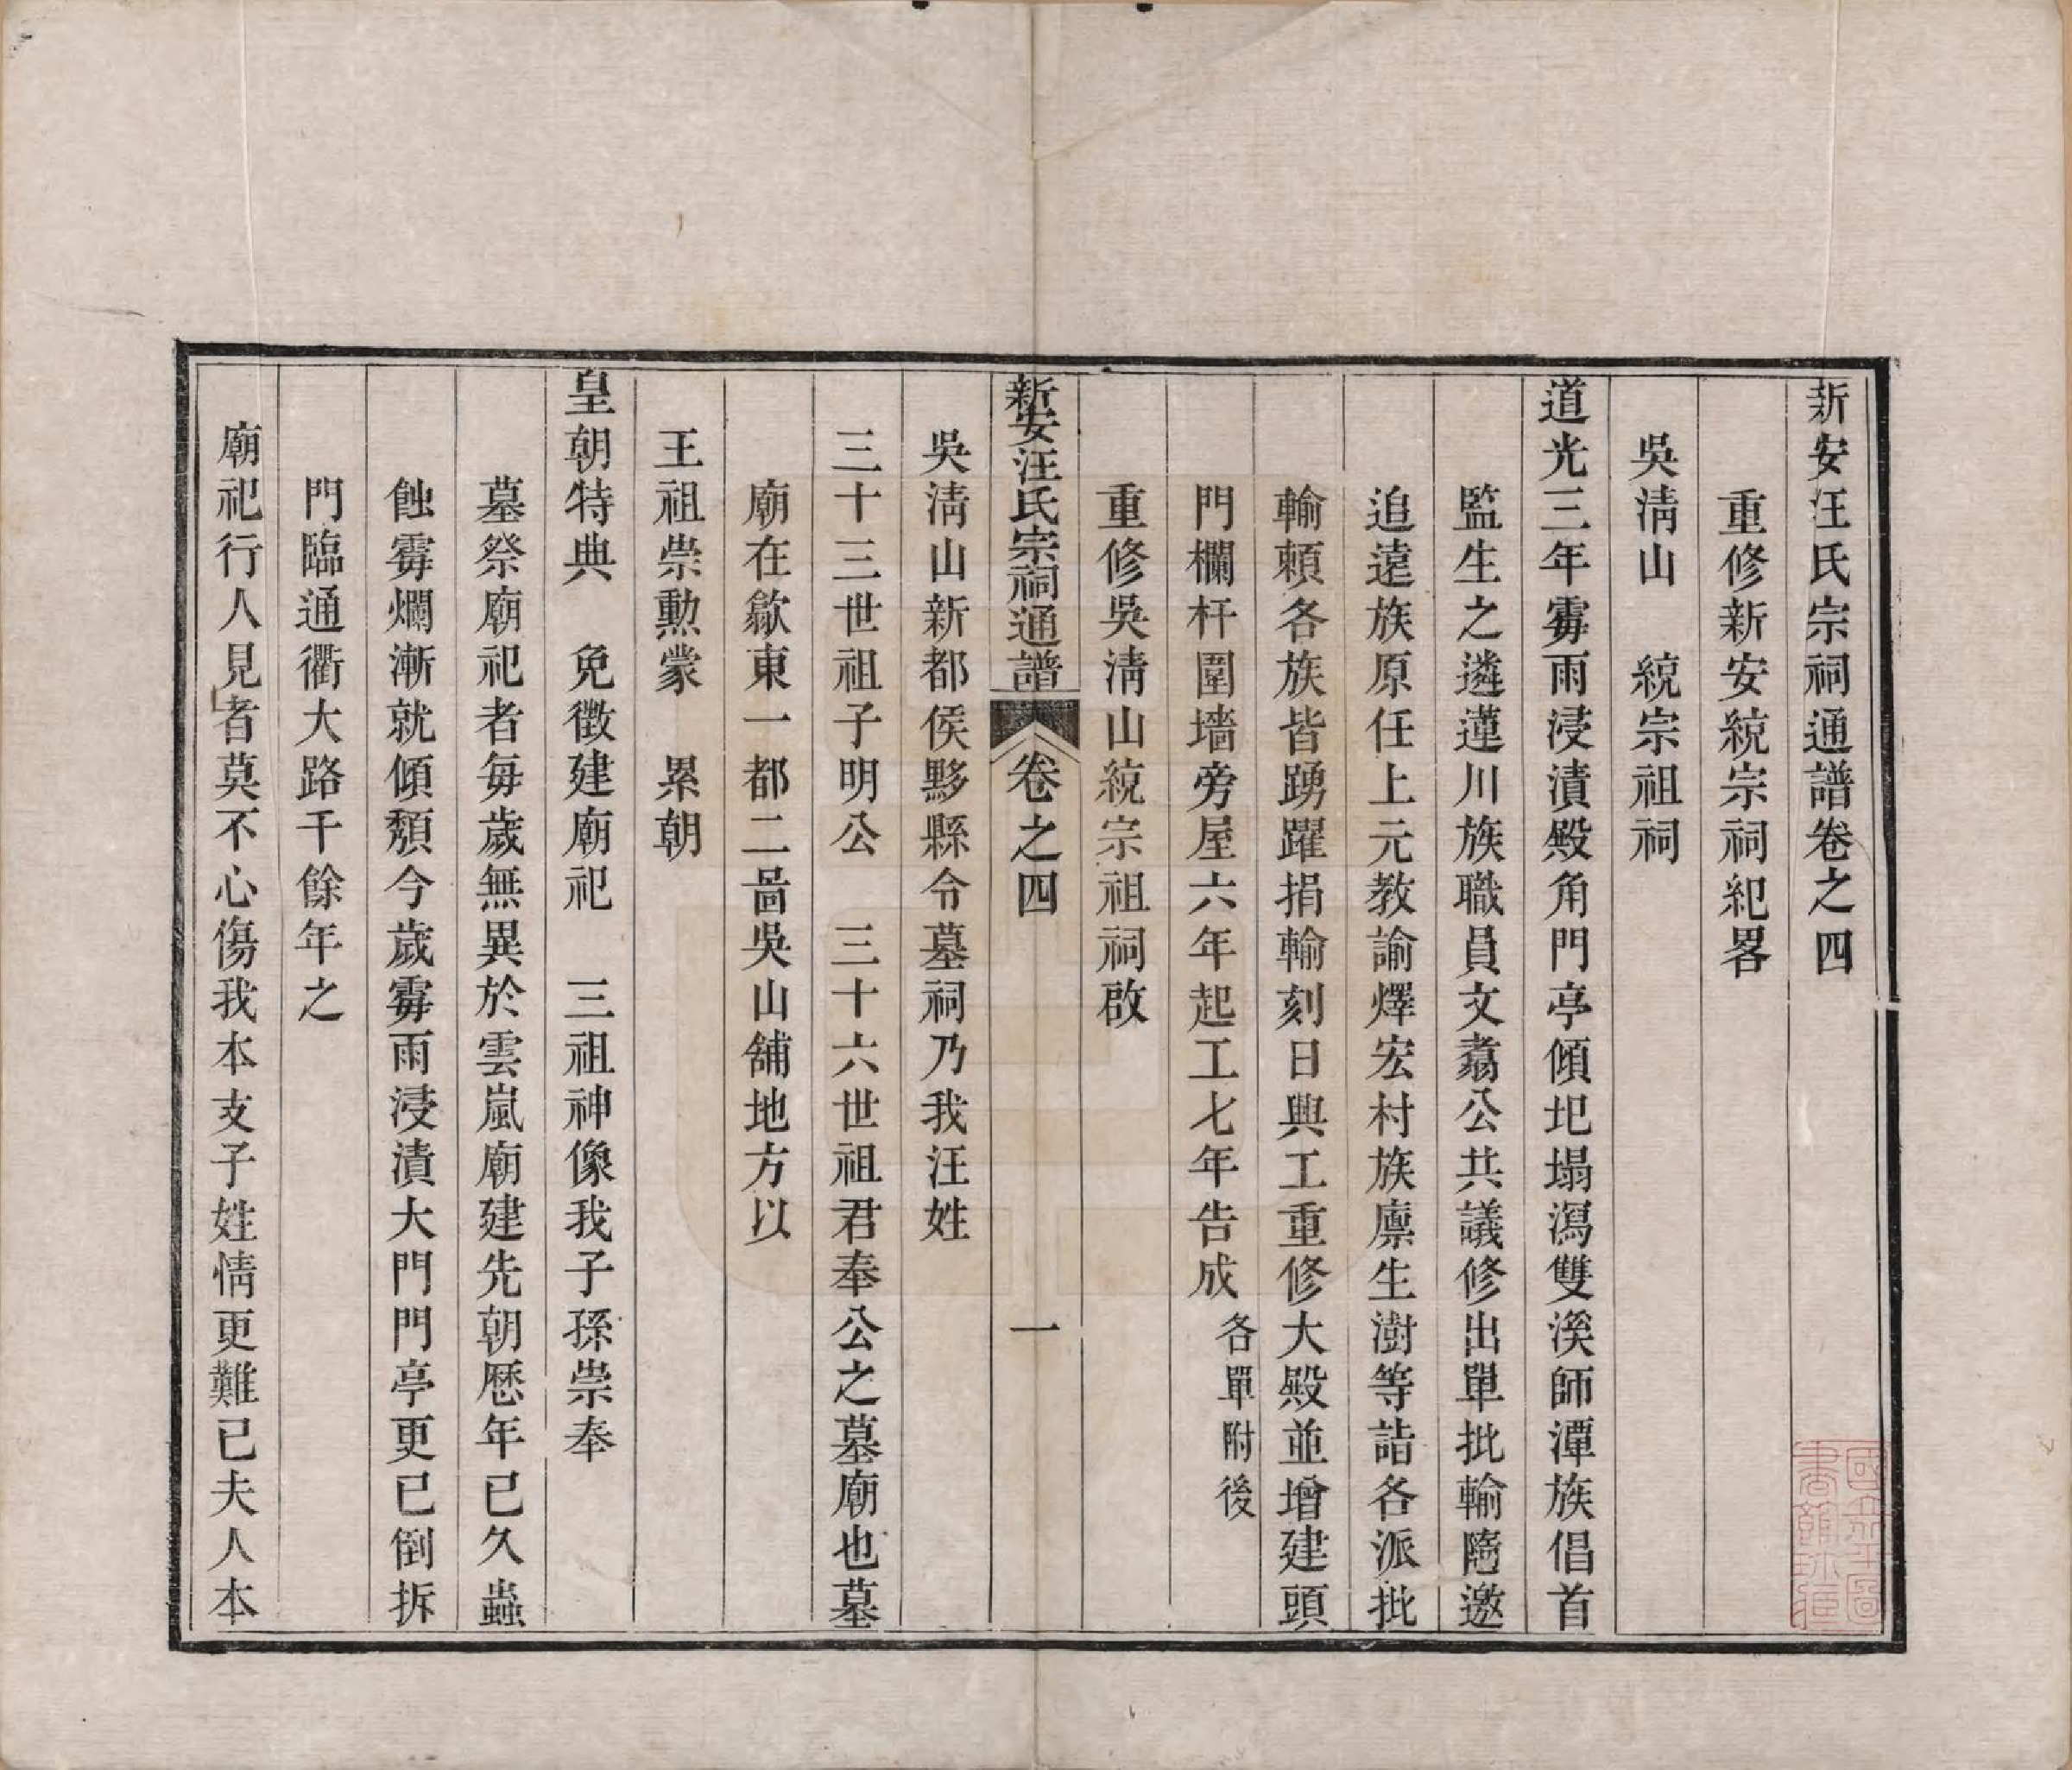 新安汪氏宗祠通譜卷之四
重修新安統宗祠紀畧
吳淸山　統宗祖祠
道光三年霧雨浸漬殿角門亭傾圯塌瀉雙溪師潭族倡首
監生之遴蓮川族職員文翥公共議修出單批輸隨邀
追遠族原任上元教諭燡宏村族廪生澍等詣各派批
輸頼各族皆踴躍捐輸刻日興工重修大殿並增建頭
門欄杆圍墻旁屋六年起工七年告成各單附後
重修吳淸山統宗祖祠啟
新安汪氏宗祠通譜　卷之四　一
吳淸山新都侯黟縣令墓祠乃我汪姓
三十三世祖子明公　三十六世祖君奉公之墓廟也墓
廟在歙東一都二啚吳山舖地方以
王祖崇勲蒙　累朝
皇朝特典　免徴建廟祀　三祖神像我子孫崇奉
墓祭廟祀者每歲無異於雲嵐廟建先朝厯年已久蟲
蝕霧爛漸就傾頽今歲霧雨浸漬大門門亭更已倒拆
門臨通衢大路千餘年之
廟祀行人見者莫不心傷我本支子姓情更難已夫人本
國立北平圖書館珍藏